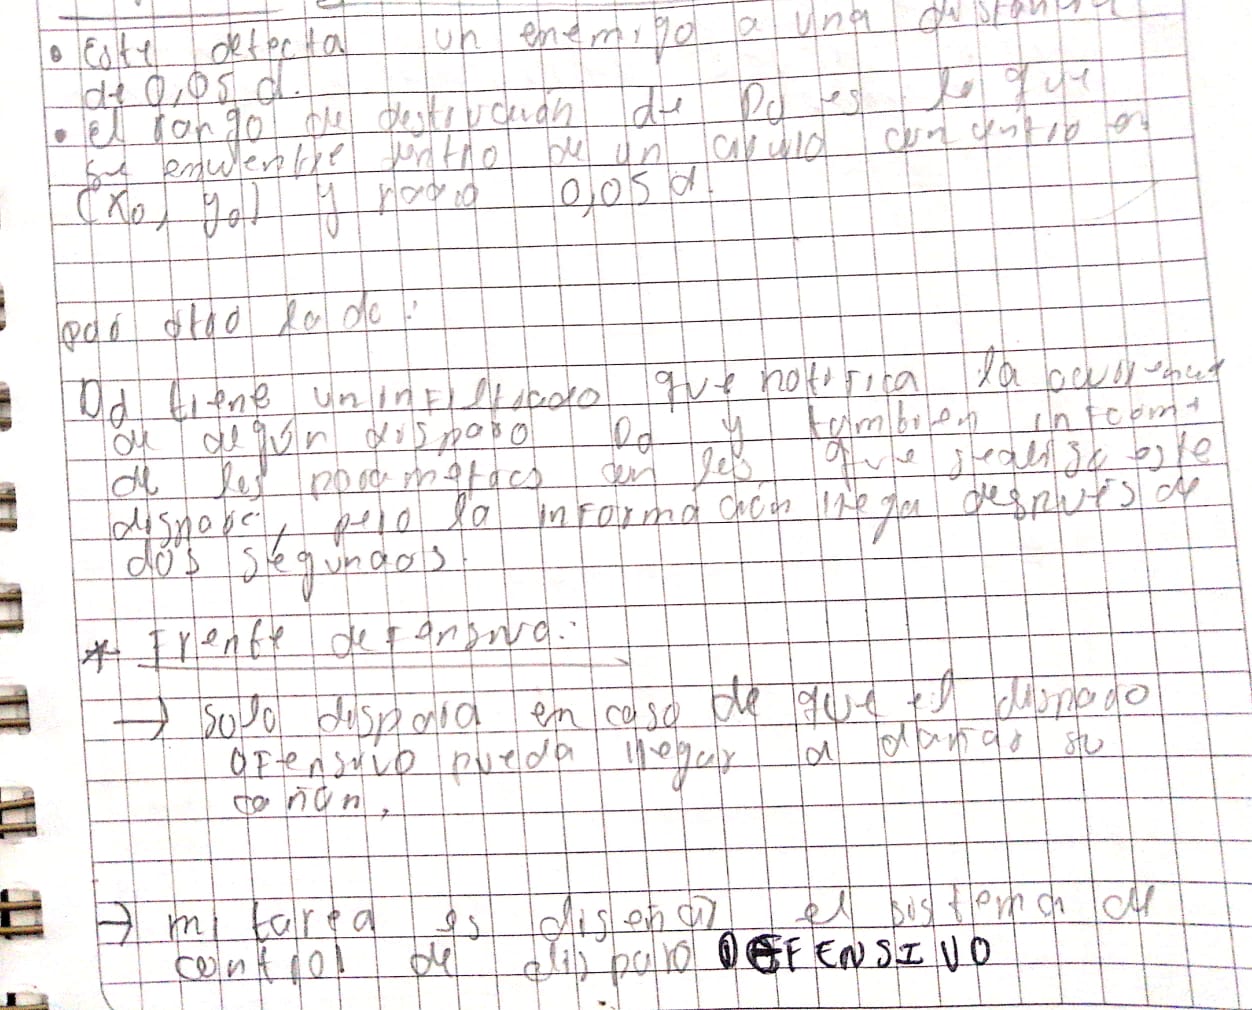 • Este detecta un enemigo a una distancia
de 0,05 d.
• el rango de destrucción de Dd es lo que
se encuentre dentro de un circulo con centro en
(x0, y0) y radio 0,05 d.
por otro lado:
Dd tiene un infiltrado que notifica la ocurrencia
de algún disparo Do y tambien informa
de los parametros con los que realiza este
disparo, pero la información llega después de
dos segundos.
* Frente defensiva:
→ solo dispara en caso de que el disparo
ofensivo pueda llegar a dañar su
cañón.
→ mi tarea es diseñar el sistema de
control de disparo DEFENSIVO